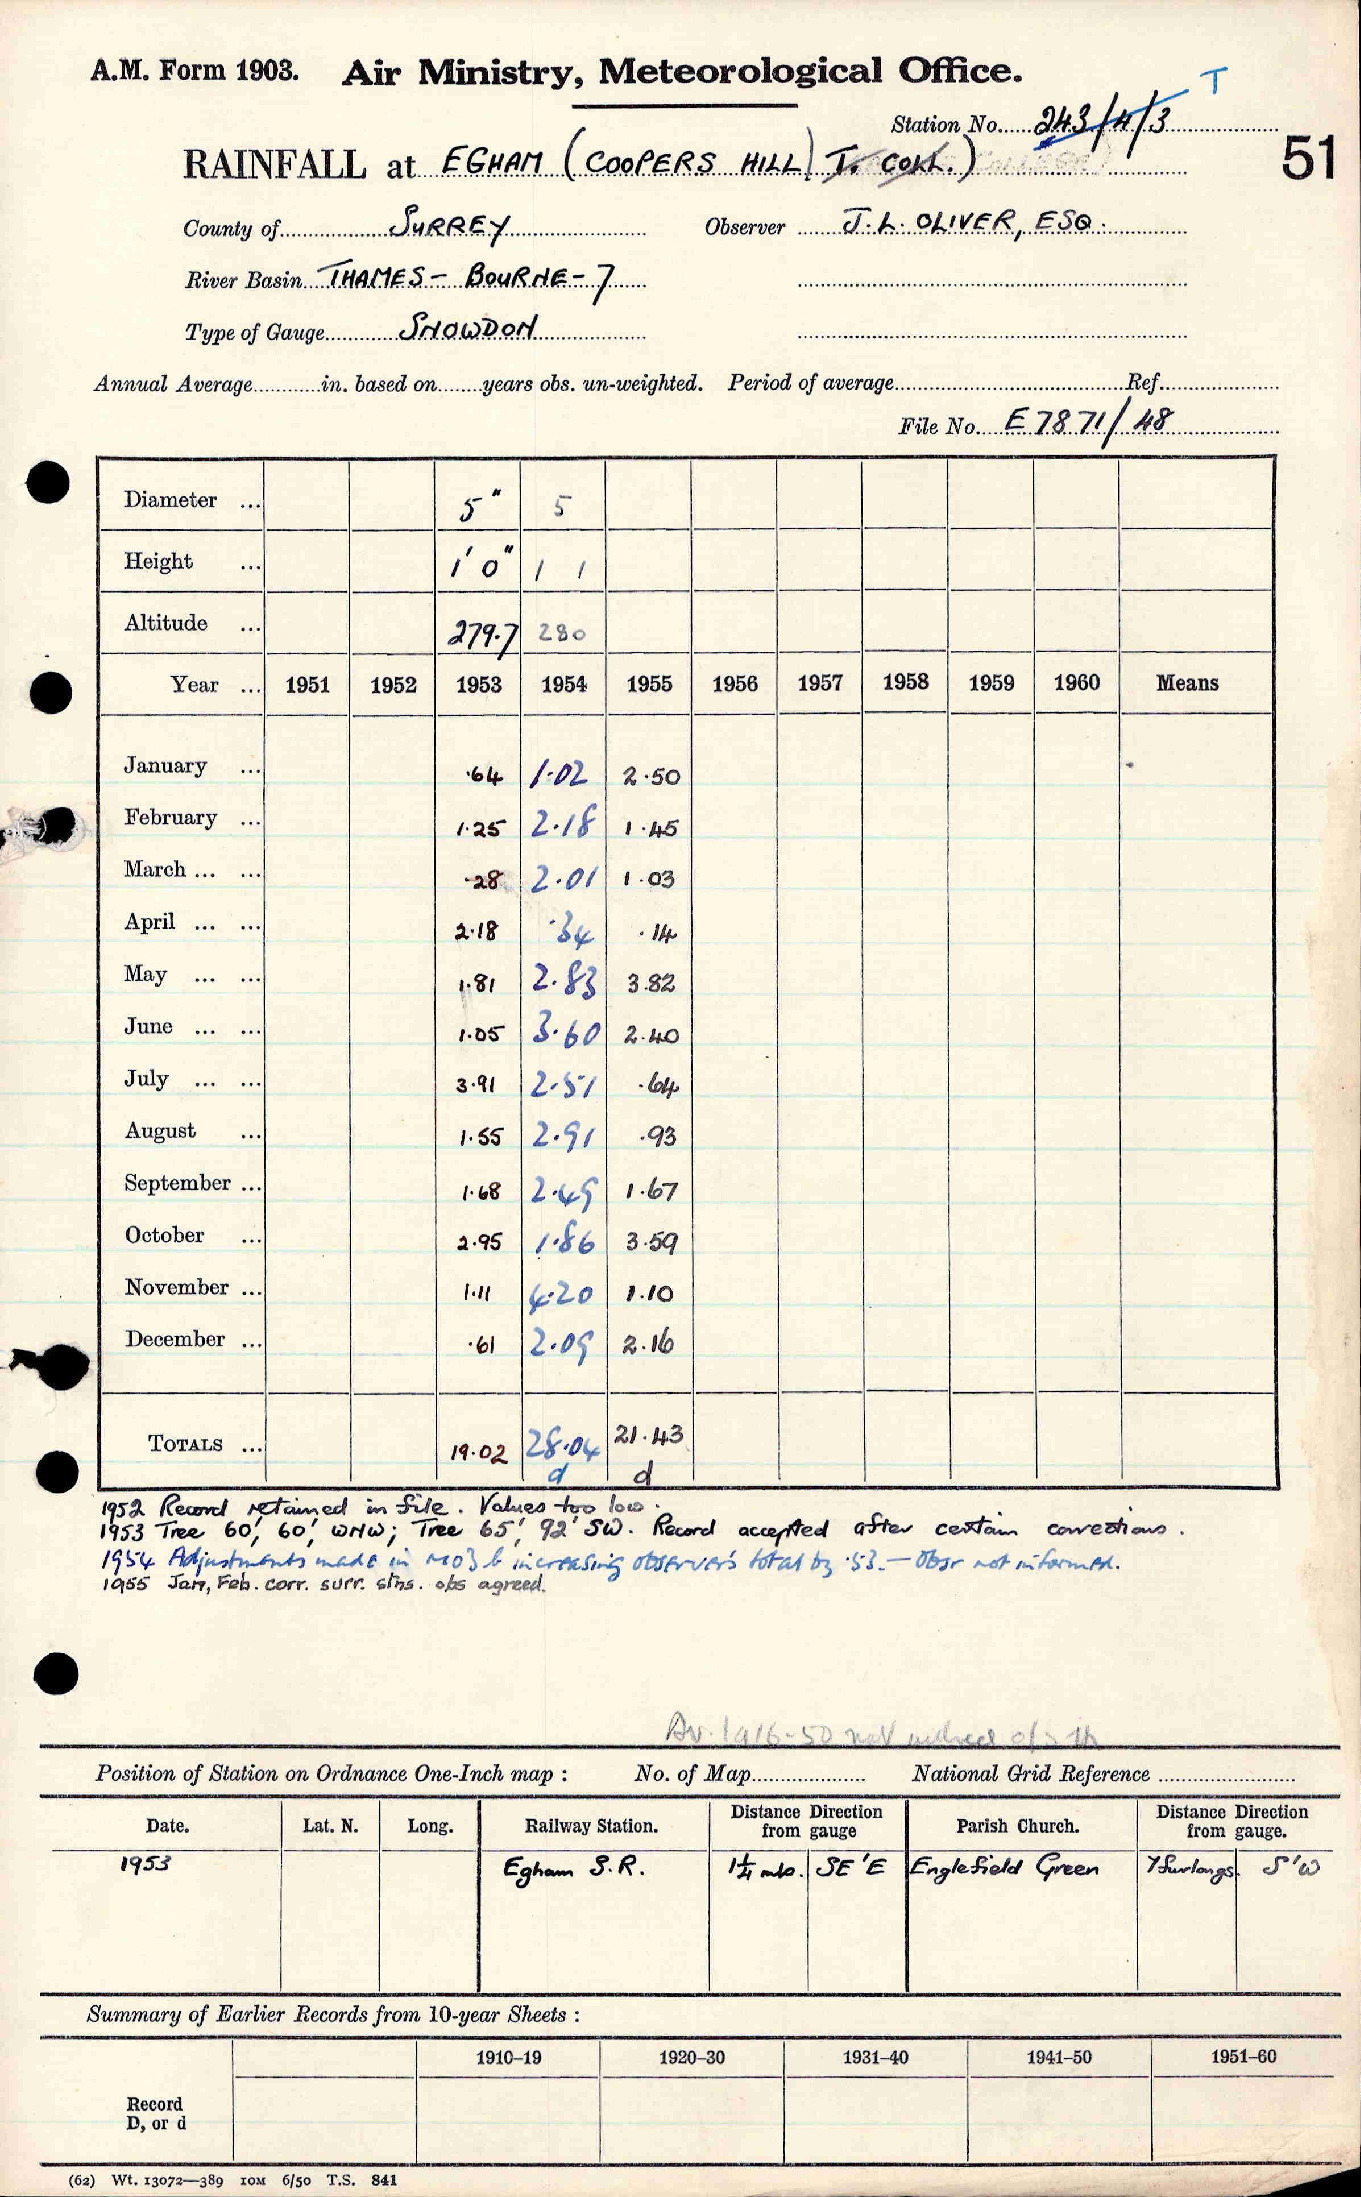 A.M. Form 1903. Air Ministry, Meteorological Office.
T
Station No. 243/4/3
51
RAINFALL at EGHAM (COOPERS HILL) T. COLL.)
County of SURREY Observer J.L. OLIVER, ESQ.
River Basin THAMES - BOURNE - 7
Type of Gauge SNOWDON
Annual Average in. based on years obs. un-weighted. Period of average Ref.
File No. E 7871/48
Diameter ... 5" 5
Height ... 1' 0" 1 1
Altitude ... 279.7 280
Year ... 1951 1952 1953 1954 1955 1956 1957 1958 1959 1960 Means
January ... ·64 1·02 2·50
February ... 1·25 2·18 1·45
March ... ... ·28 2·01 1·03
April ... ... 2·18 ·34 ·14
May ... ... 1·81 2·83 3·82
June ... ... 1·05 3·60 2·40
July ... ... 3·91 2·51 ·64
August ... 1·55 2·91 ·93
September ... 1·68 2·49 1·67
October ... 2·95 1·86 3·59
November ... 1·11 4·20 1·10
December ... ·61 2·09 2·16
TOTALS ... 19·02 28·04 21·43
d d
1952 Record retained in file. Values too low.
1953 Tree 60', 60' WNW; Tree 65', 92' SW. Record accepted after certain corrections.
1954 Adjustments made in MO3b increasing observer's total by ·53. — Obsr not informed.
1955 Jan, Feb. corr. surr. stns. obs agreed.
Av. 1916-50 not
Position of Station on Ordnance One-Inch map : No. of Map National Grid Reference
Date. Lat. N. Long. Railway Station. Distance Direction from gauge Parish Church. Distance Direction from gauge.
1953 Egham S.R. 1¼ mls. SE'E Englefield Green 7 furlongs S'W
Summary of Earlier Records from 10-year Sheets :
1910–19 1920–30 1931–40 1941–50 1951–60
Record
D, or d
(62) Wt. 13072—389 10M 6/50 T.S. 841